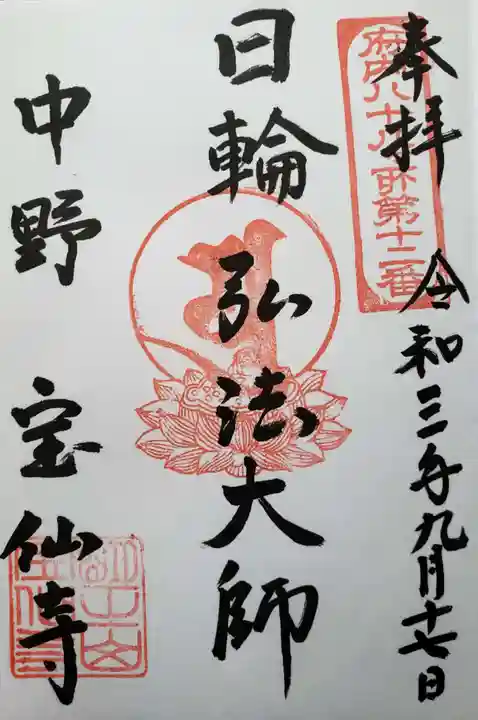 奉拝
令和三年九月十七日
府内八十八ヶ所第十二番
日輪弘法大師
中野 宝仙寺